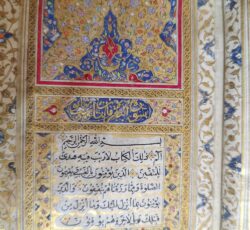 بسم الله الرحمن الرحيم
الم ذلك الكتاب لا ريب فيه هدى
للمتقين الذين يؤمنون بالغيب ويقيمون
الصلوة ومما رزقناهم ينفقون والذين
يؤمنون بما انزل اليك وما انزل من
قبلك وبالاخرة هم يوقنون